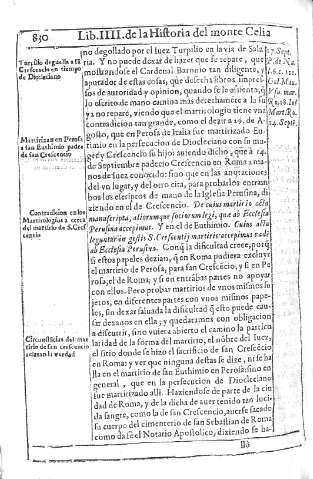 830 Lib. IIII. de la Historia del monte Celia
Turpilio deguella a sã
Crescencio en tiempo
de Diocleciano
no degollado por el Juez Turpilio en la via de Sala
ria. Y no puede dexar de hazer que se repare, que
mostrandose el Cardenal Baronio tan diligente, y
apurador de estas cosas, que desecha libros impres-
sos de autoridad y opinion, quando se le ofrece
lo escrito de mano camina mas derechamẽte a la su
ya no reparè, viendo que el martirologio tiene vna
contradicion tan grande, como el dezir a 29. de A-
gosto, que en Perosa de Italia fue martirizado Eu-
timio en la persecucion de Diocleciano con su mu-
ger y Crescencio su hijo: auiendo dicho, que a 14.
de Septiembre padecio Crescencio en Roma a ma-
nos de juez conocido: sino que en las anotaciones
del vn lugar, y del otro cita, para probarlos entram
bos los escriptos de mano de la Iglesia Perusina, di
ziendo en el de Crescencio. De cuius martirio acta
manuscripta, aliorumque sociorum legi, quæ ab Ecclesia
Perusina accepimus. Y en el de Euthimio. Cuius acta
leguntur in gestis S. Crescentij martiris: accepimus ea de
ab Ecclesia Perusina. Conq̃ la dificultad crece, porq̃
si estos papeles dezian, q̃ en Roma padecio excluye
el martirio de Perosa, para san Crescẽcio, y si en Pe-
rosa, el de Roma; y si en entrãbas partes no apoyar
con ellos. Pero probar martirios de vnos mismos su
jetos, en diferentes partes con vnos mismos pape-
les, sin dexar saluada la dificultad q̃ esto puede cau-
sar
a discurrir, sino vuiera abierto el camino la partien
laridad de la forma del martirio, el nõbre del Juez,
el sitio donde se hizo el sacrificio de san Crescẽcio
en Roma: y ver que ninguna destas se dize, ni se ha
lla en el martirio de san Euthimio en Perosa: sino en
general, que en la persecucion de Diocleciano
fue martirizado alli. Haziendose de parte de la ciu
dad de Roma, y de la dicha de auer tenido tan luci-
da sangre, como la de san Crescencio, auerse sacado
su cuerpo del cimenterio de san Sebastian de Roma
como da fe el Notario Apostolico, diziendo se ha-
Martirizan en Perosa
a san Euthimio padre
de san Crescencio
Contradicion en los
Martirologios a cerca
del martirio de S. Cresc
encio
Circunstãcias del mar
tirio de san Crescencio
aclaran la verdad
17. Sept.
P. de Na.
l. 6. c. 122.
Gal. Mau.
Vsu. mar.
Ro. 28. Iul
Mart. Ro.
14. Sept.